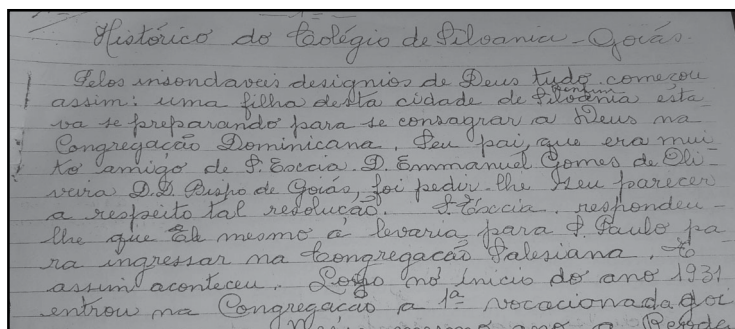 Histórico do Colégio de Silvania - Goiás.
Pelos insondaveis designios de Deus tudo começou
assim: uma filha desta cidade de Silvânia esta
va se preparando para se consagrar a Deus na
Congregação Dominicana. Seu pai, que era mui
to amigo de S. Excia. D. Emmanuel Gomes de Oli-
veira D.D. Bispo de Goiás, foi pedir-lhe seu parecer
a respeito tal resolução. S. Excia. respondeu-
lhe que Ele mesmo a levaria para S. Paulo pa
ra ingressar na Congregação Salesiana. E
assim aconteceu. Logo no inicio do ano 1931
entrou na Congregação a 1ª vocacionada goi
mesmo ano a